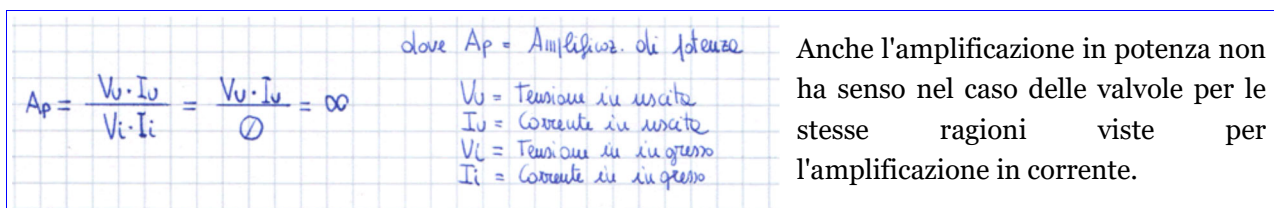 dove Ap = Amplificaz. di potenza
Ap = Vu·Iu / Vi·Ii = Vu·Iu / 0 = ∞
Vu = Tensione in uscita
Iu = Corrente in uscita
Vi = Tensione in ingresso
Ii = Corrente in ingresso
Anche l'amplificazione in potenza non
ha senso nel caso delle valvole per le
stesse ragioni viste per
l'amplificazione in corrente.